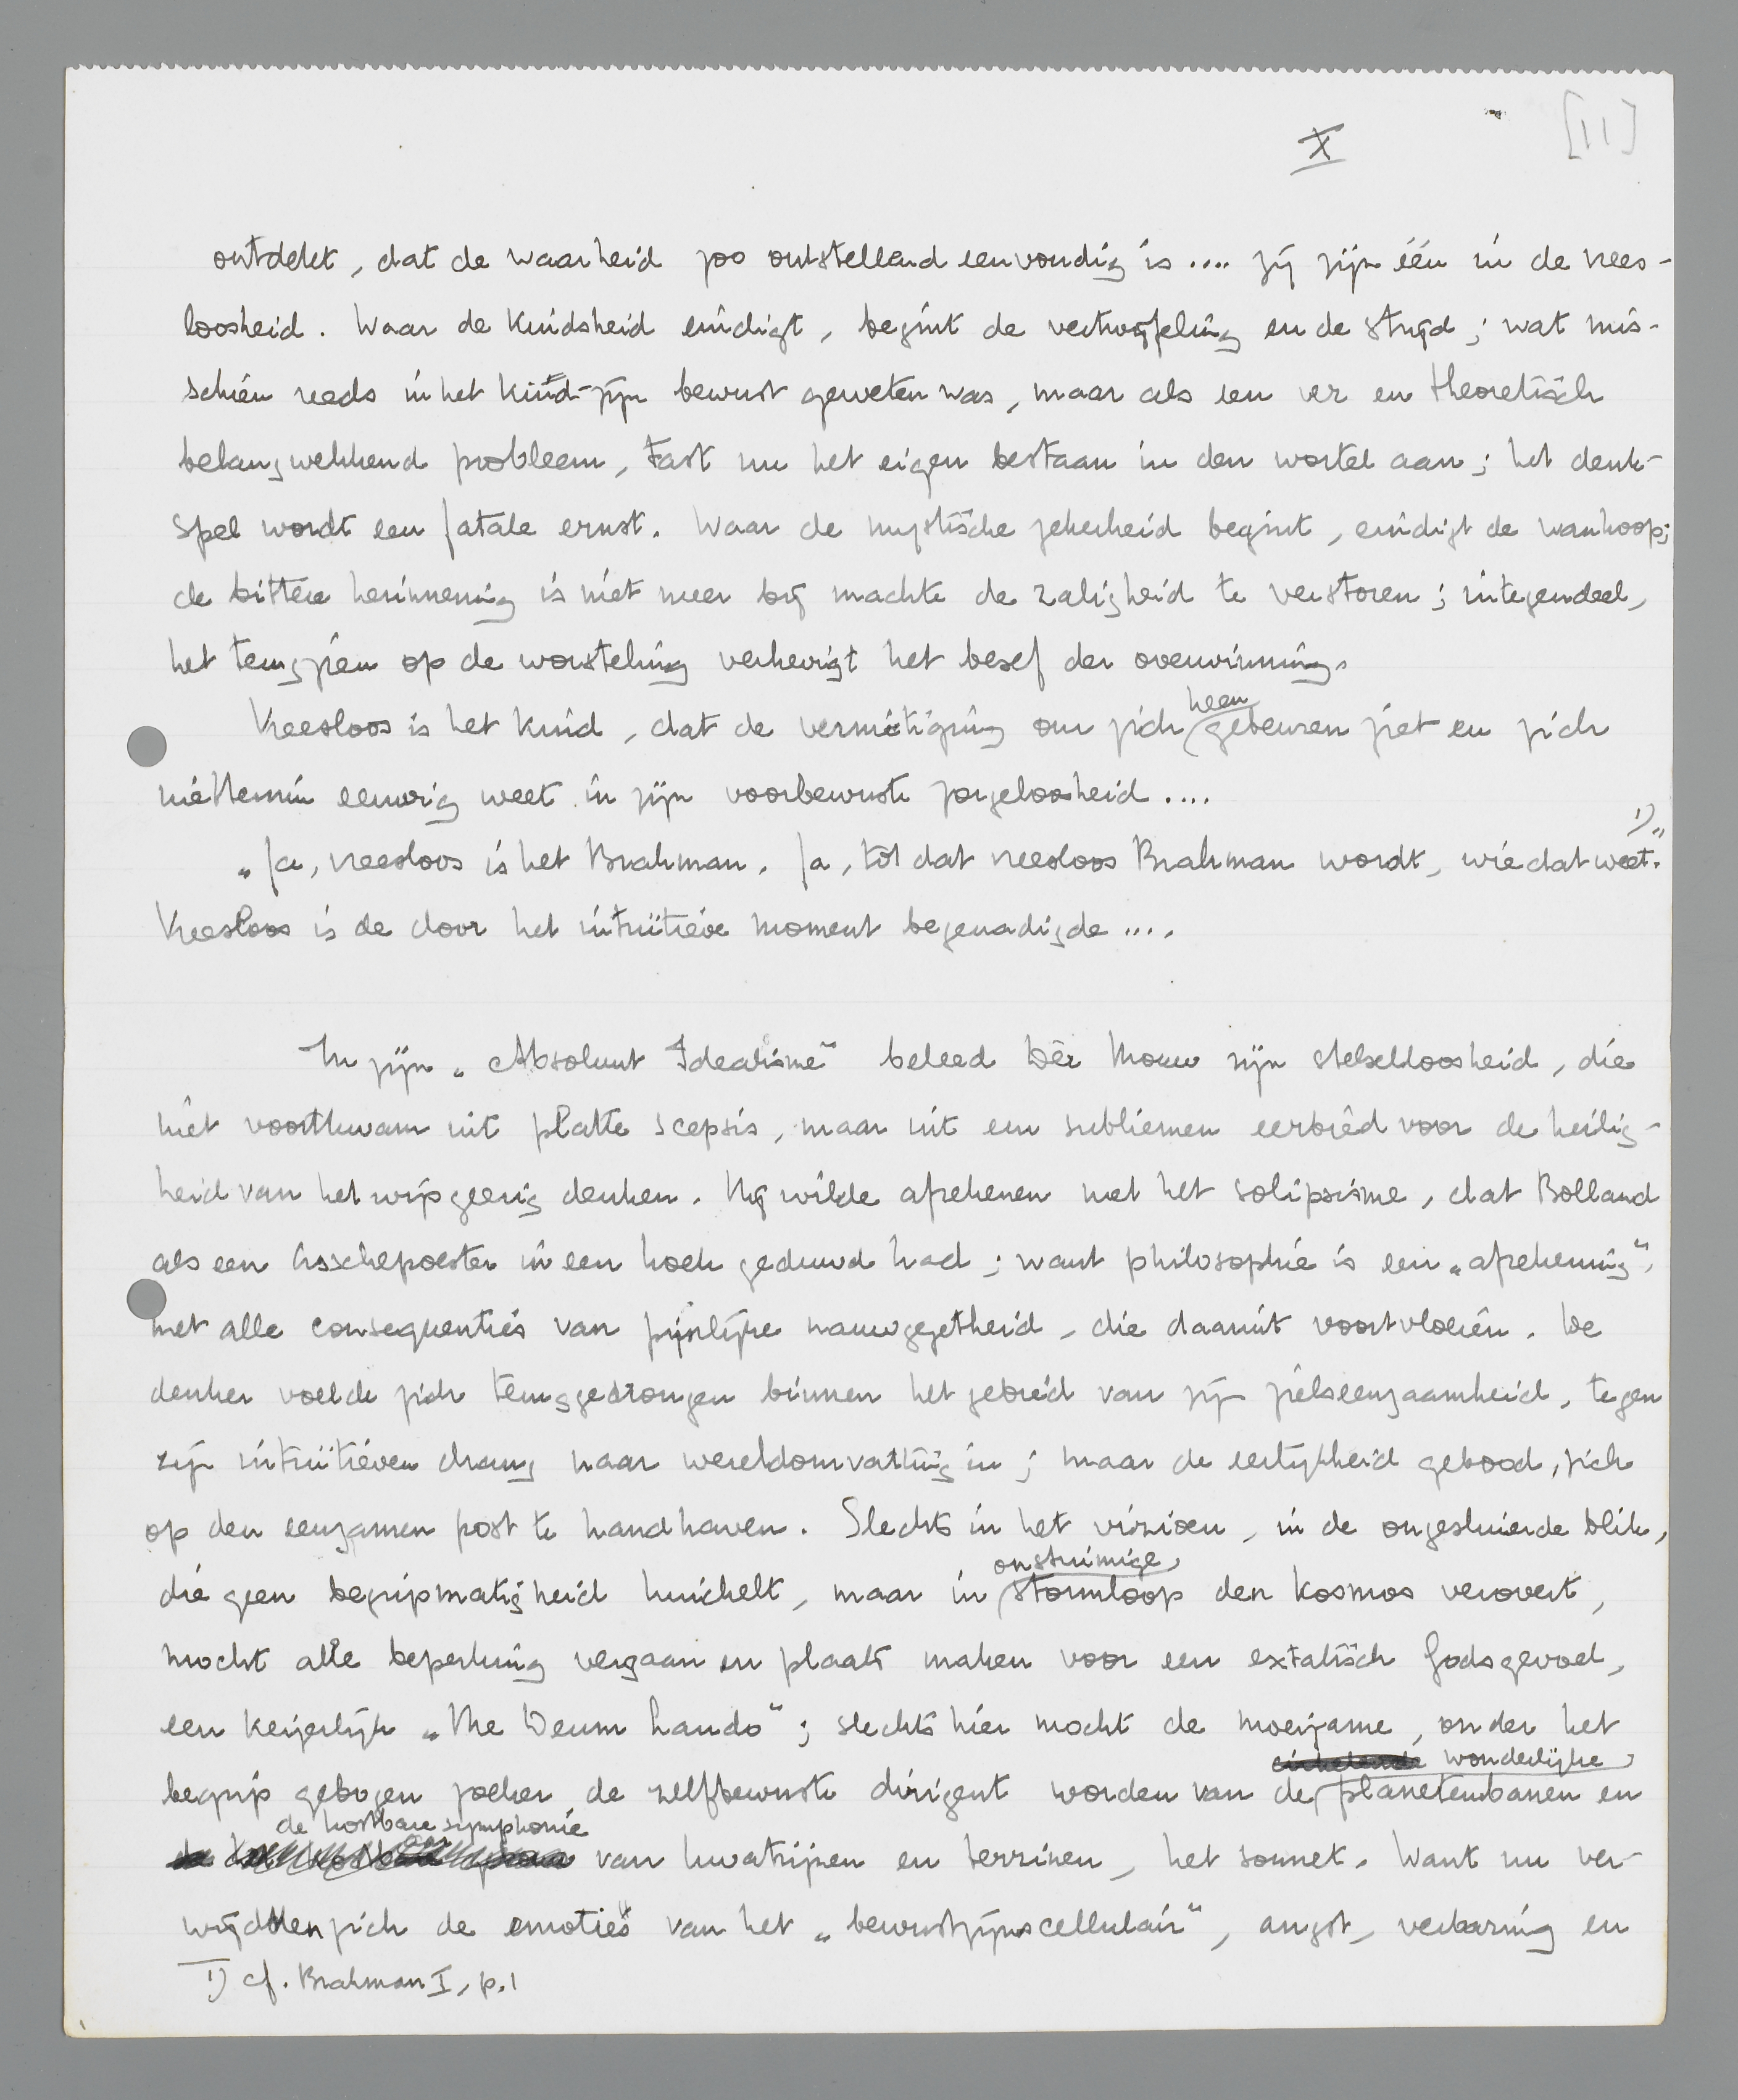 X
[11]
ontdekt, dat de waarheid zoo ontstellend eenvoudig is .... zij zijn één in de vrees-
loosheid. Waar de kindsheid eindigt, begint de vertwijfeling en de strijd; wat mis-
schien reeds in het kind-zijn bewust geweten was, maar als een ver en theoretisch
belangwekkend probleem, tast nu het eigen bestaan in den wortel aan; het denk-
spel wordt een fatale ernst. Waar de mystische zekerheid begint, eindigt de wanhoop;
de bittere herinnering is niet meer bij machte de zaligheid te verstoren; integendeel,
het terugzien op de worsteling verhevigt het besef der overwinning.
Vreesloos is het kind, dat de vernietiging om zich heen gebeuren ziet en zich
niettemin eeuwig weet in zijn voorbewuste zorgeloosheid ....
„Ja, vreesloos is het Brahman. Ja, tot dat vreesloos Brahman wordt, wie dat weet." 1)
Vreesloos is de door het intuïtieve moment begenadigde ....
In zijn „Absoluut Idealisme" beleed Dèr Mouw zijn stelselloosheid, die
niet voortkwam uit platte scepsis, maar uit een subliemen eerbied voor de heilig-
heid van het wijsgeerig denken. Hij wilde afrekenen met het solipsisme, dat Bolland
als een Asschepoester in een hoek geduwd had; want philosophie is een „afrekening",
met alle consequenties van pijnlijke nauwgezetheid, die daaruit voortvloeien. De
denker voelde zich teruggedrongen binnen het gebied van zijn zielseenzaamheid, tegen
zijn intuïtieven drang naar wereldomvatting in; maar de eerlijkheid gebood, zich
op den eenzamen post te handhaven. Slechts in het visioen, in de ongesluierde blik,
die geen begripmatigheid huichelt, maar in onstuimige stormloop den kosmos verovert,
mocht alle beperking vergaan en plaats maken voor een extatisch Godsgevoel,
een keizerlijk „Me Deum laudo"; slechts hier mocht de moeizame, onder het
begrip gebogen zoeker de zelfbewuste dirigent worden van de cirkelende wonderlijke planetenbanen en
de kostbare symphonie van kwatrijnen en terzinen, het sonnet. Want nu ver-
wijdden zich de emoties van het „bewustzijnscellulair", angst, verbazing en
1) cf. Brahman I, p. 1